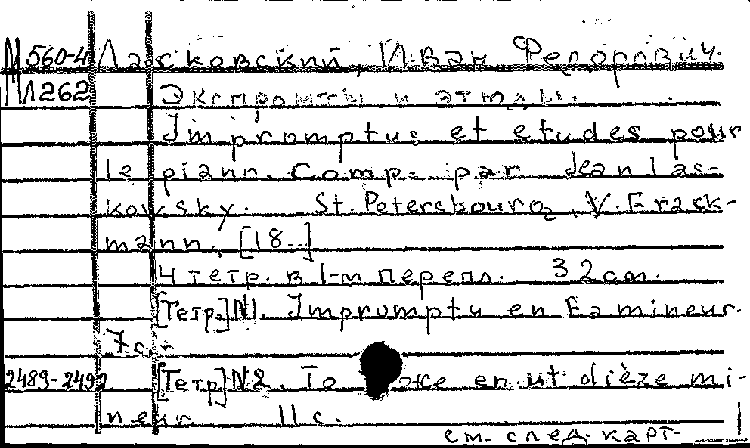 М 560-4 Ласковский, Иван Федорович.
Л262 Экспромты и этюды.
Impromptus et etudes pour
le piano. Comp. par Jean Las-
kowsky. St. Petersbourg, V. Grack-
mann, [18..]
4 тетр. в 1-м перепл. 32 cm.
[Тетр.] N1. Impromptu en Fa mineur.
7 с.-
2489-2492 [Тетр.] N2. То же en ut dièze mi-
neur. 11 с.
см. след. карт.